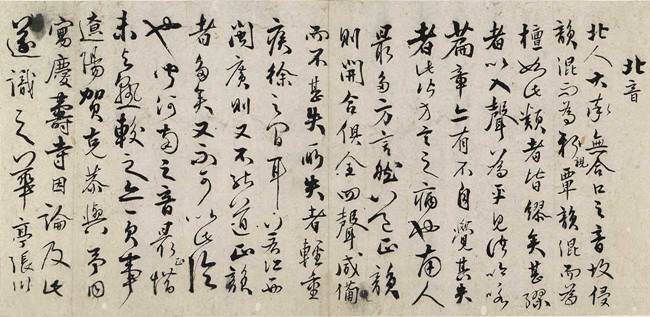 北音
北人大率無合口之音故侵
韻混而為親覃韻混而為
檀如此類者皆繆矣甚繆
者以入聲為平見諸吟咏
篇章亦有不自覺其失
者此乃方言之病也南人
最多方言然以之正韻
則開合俱全四聲咸備
而不甚失所失者輕重
疾徐之間耳以若江西
閩廣則又不能道正韻
者多矣又不可以此論
也聞河南之音最正惜
未與較之亦一負事
遼陽賀克恭與予同
寓慶壽寺因論及此
遂識之華亭張